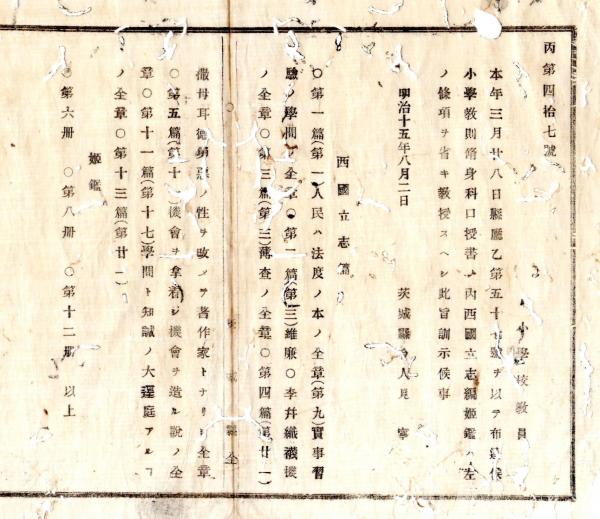 丙第四拾七號
小學校教員
本年三月廿八日縣廳乙第五十號ヲ以テ布達候
小學教則脩身科口授書ノ內西國立志編姬鑑ハ左
ノ條項ヲ省キ教授スヘシ此旨訓示候事
明治十五年八月二日
茨城縣令人見寧
西國立志篇
○第一篇(第一)人民ハ法度ノ本ノ全章(第九)實事習
驗ノ學問ノ全章○第二篇(第三)維廉○李幷織襪機
ノ全章○第三篇(第三)薄査ノ全章○第四篇(第廿一)
茨城縣
撒母耳德ノ性ヲ改メテ著作家トナリシ全章
○第五篇(第十一)機會ヲ拿着シ機會ヲ造ル說ノ全
章○第十一篇(第十七)學問ト知識ノ大逕庭アルノ
ノ全章○第十三篇(第廿一)
姬鑑
○第六册 ○第八册 ○第十二册 以上